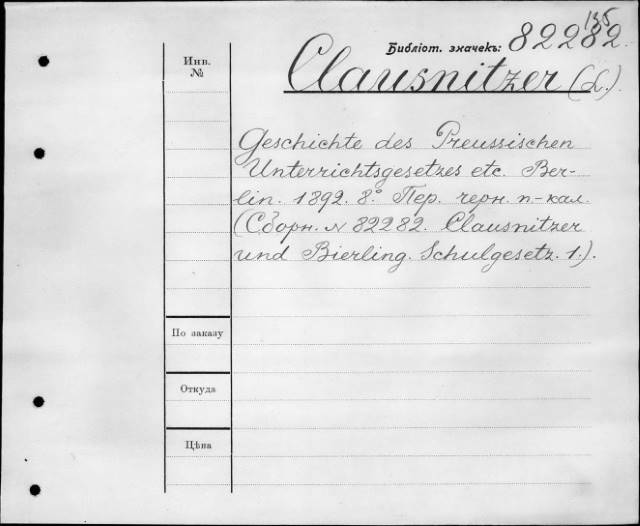 135
Библіот. значекъ: 82282.
Инв. №
Clausnitzer (L.).
Geschichte des Preussischen
Unterrichtsgesetzes etc. Ber-
lin. 1892. 8º. Пер. черн. п-кал.
(Сборн. № 82282. Clausnitzer
und Bierling. Schulgesetz. 1.).
По заказу
Откуда
Цѣна